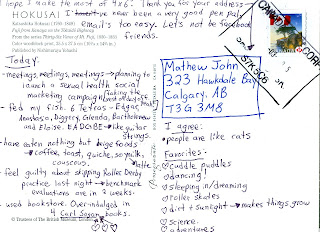 I hope I make the most of 4x6! Thank you for your address
HOKUSAI I haven't ever been a very good pen pal,
email's too easy. Let's not be facebook
friends.
Katsushika Hokusai (1760-1849)
Fuji from Kanaya on the Tōkaidō Highway
From the series Thirty-Six Views of Mt. Fuji, 1830-1833
Today:
- meetings, meetings, meetings → planning to
launch a sexual health social
marketing campaign
- fed my fish. 6 Tetras - Edgar,
Anastasia, Diggory, Glenda, Bartholomew
and Eloise. EADGBE → like guitar
strings.
- have eaten nothing but beige foods
→ coffee, toast, quiche, soy milk,
couscous.
- feel guilty about skipping Roller Derby
practice last night → benchmark
evaluations are in 2 weeks.
- used bookstore. Over-indulged in
4 Carl Sagan books.
© Trustees of The British Museum
Mathew John
323 Hawkdale Bay
Calgary, AB
T3G 3M8
I agree:
• people are like cats
Favorites:
cuddle puddles
dancing!
sleeping in/dreaming
roller skates
dirt + sunlight → makes things grow
science
adventures